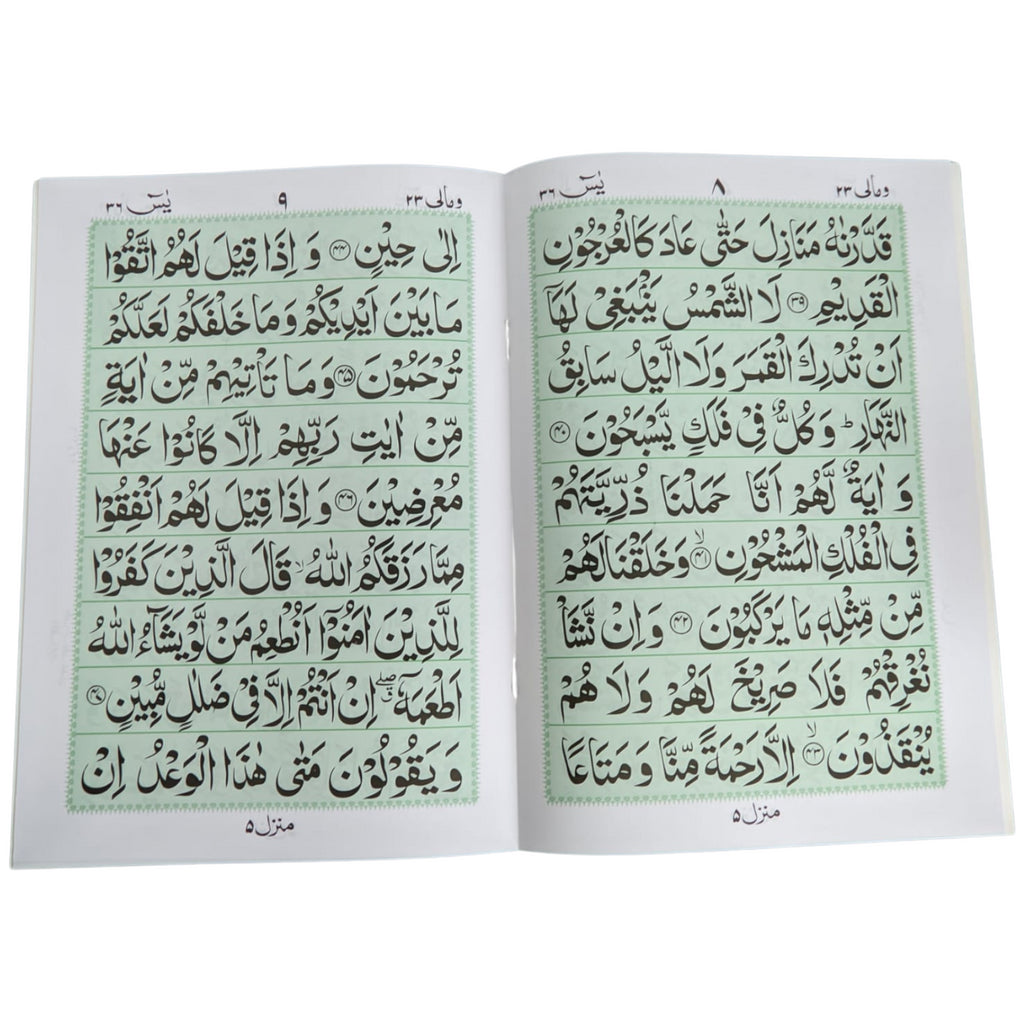 ومالی ۲۳
۸
یٰسٓ ۳۶
قَدَّرْنٰهُ مَنَازِلَ حَتّٰی عَادَ کَالْعُرْجُوْنِ
الْقَدِیْمِ ۳۹ لَا الشَّمْسُ یَنْۢبَغِیْ لَهَاۤ
اَنْ تُدْرِكَ الْقَمَرَ وَلَا الَّیْلُ سَابِقُ
النَّهَارِ ؕ وَکُلٌّ فِیْ فَلَكٍ یَّسْبَحُوْنَ ۴۰
وَ اٰیَةٌ لَّهُمْ اَنَّا حَمَلْنَا ذُرِّیَّتَهُمْ
فِی الْفُلْكِ الْمَشْحُوْنِ ۙ ۴۱ وَخَلَقْنَا لَهُمْ
مِّنْ مِّثْلِهٖ مَا یَرْکَبُوْنَ ۴۲ وَ اِنْ نَّشَاْ
نُغْرِقْهُمْ فَلَا صَرِیْخَ لَهُمْ وَلَا هُمْ
یُنْقَذُوْنَ ۙ ۴۳ اِلَّا رَحْمَةً مِّنَّا وَ مَتَاعًا
منزل ۵
ومالی ۲۳
۹
یٰسٓ ۳۶
اِلٰی حِیْنٍ ۴۴ وَ اِذَا قِیْلَ لَهُمُ اتَّقُوْا
مَا بَیْنَ اَیْدِیْکُمْ وَ مَا خَلْفَکُمْ لَعَلَّکُمْ
تُرْحَمُوْنَ ۴۵ وَ مَا تَاْتِیْهِمْ مِّنْ اٰیَةٍ
مِّنْ اٰیٰتِ رَبِّهِمْ اِلَّا کَانُوْا عَنْهَا
مُعْرِضِیْنَ ۴۶ وَ اِذَا قِیْلَ لَهُمْ اَنْفِقُوْا
مِمَّا رَزَقَکُمُ اللّٰهُ ۙ قَالَ الَّذِیْنَ کَفَرُوْا
لِلَّذِیْنَ اٰمَنُوْۤا اَنُطْعِمُ مَنْ لَّوْ یَشَآءُ اللّٰهُ
اَطْعَمَهٗۤ ۖق اِنْ اَنْتُمْ اِلَّا فِیْ ضَلٰلٍ مُّبِیْنٍ ۴۷
وَ یَقُوْلُوْنَ مَتٰی هٰذَا الْوَعْدُ اِنْ
منزل ۵